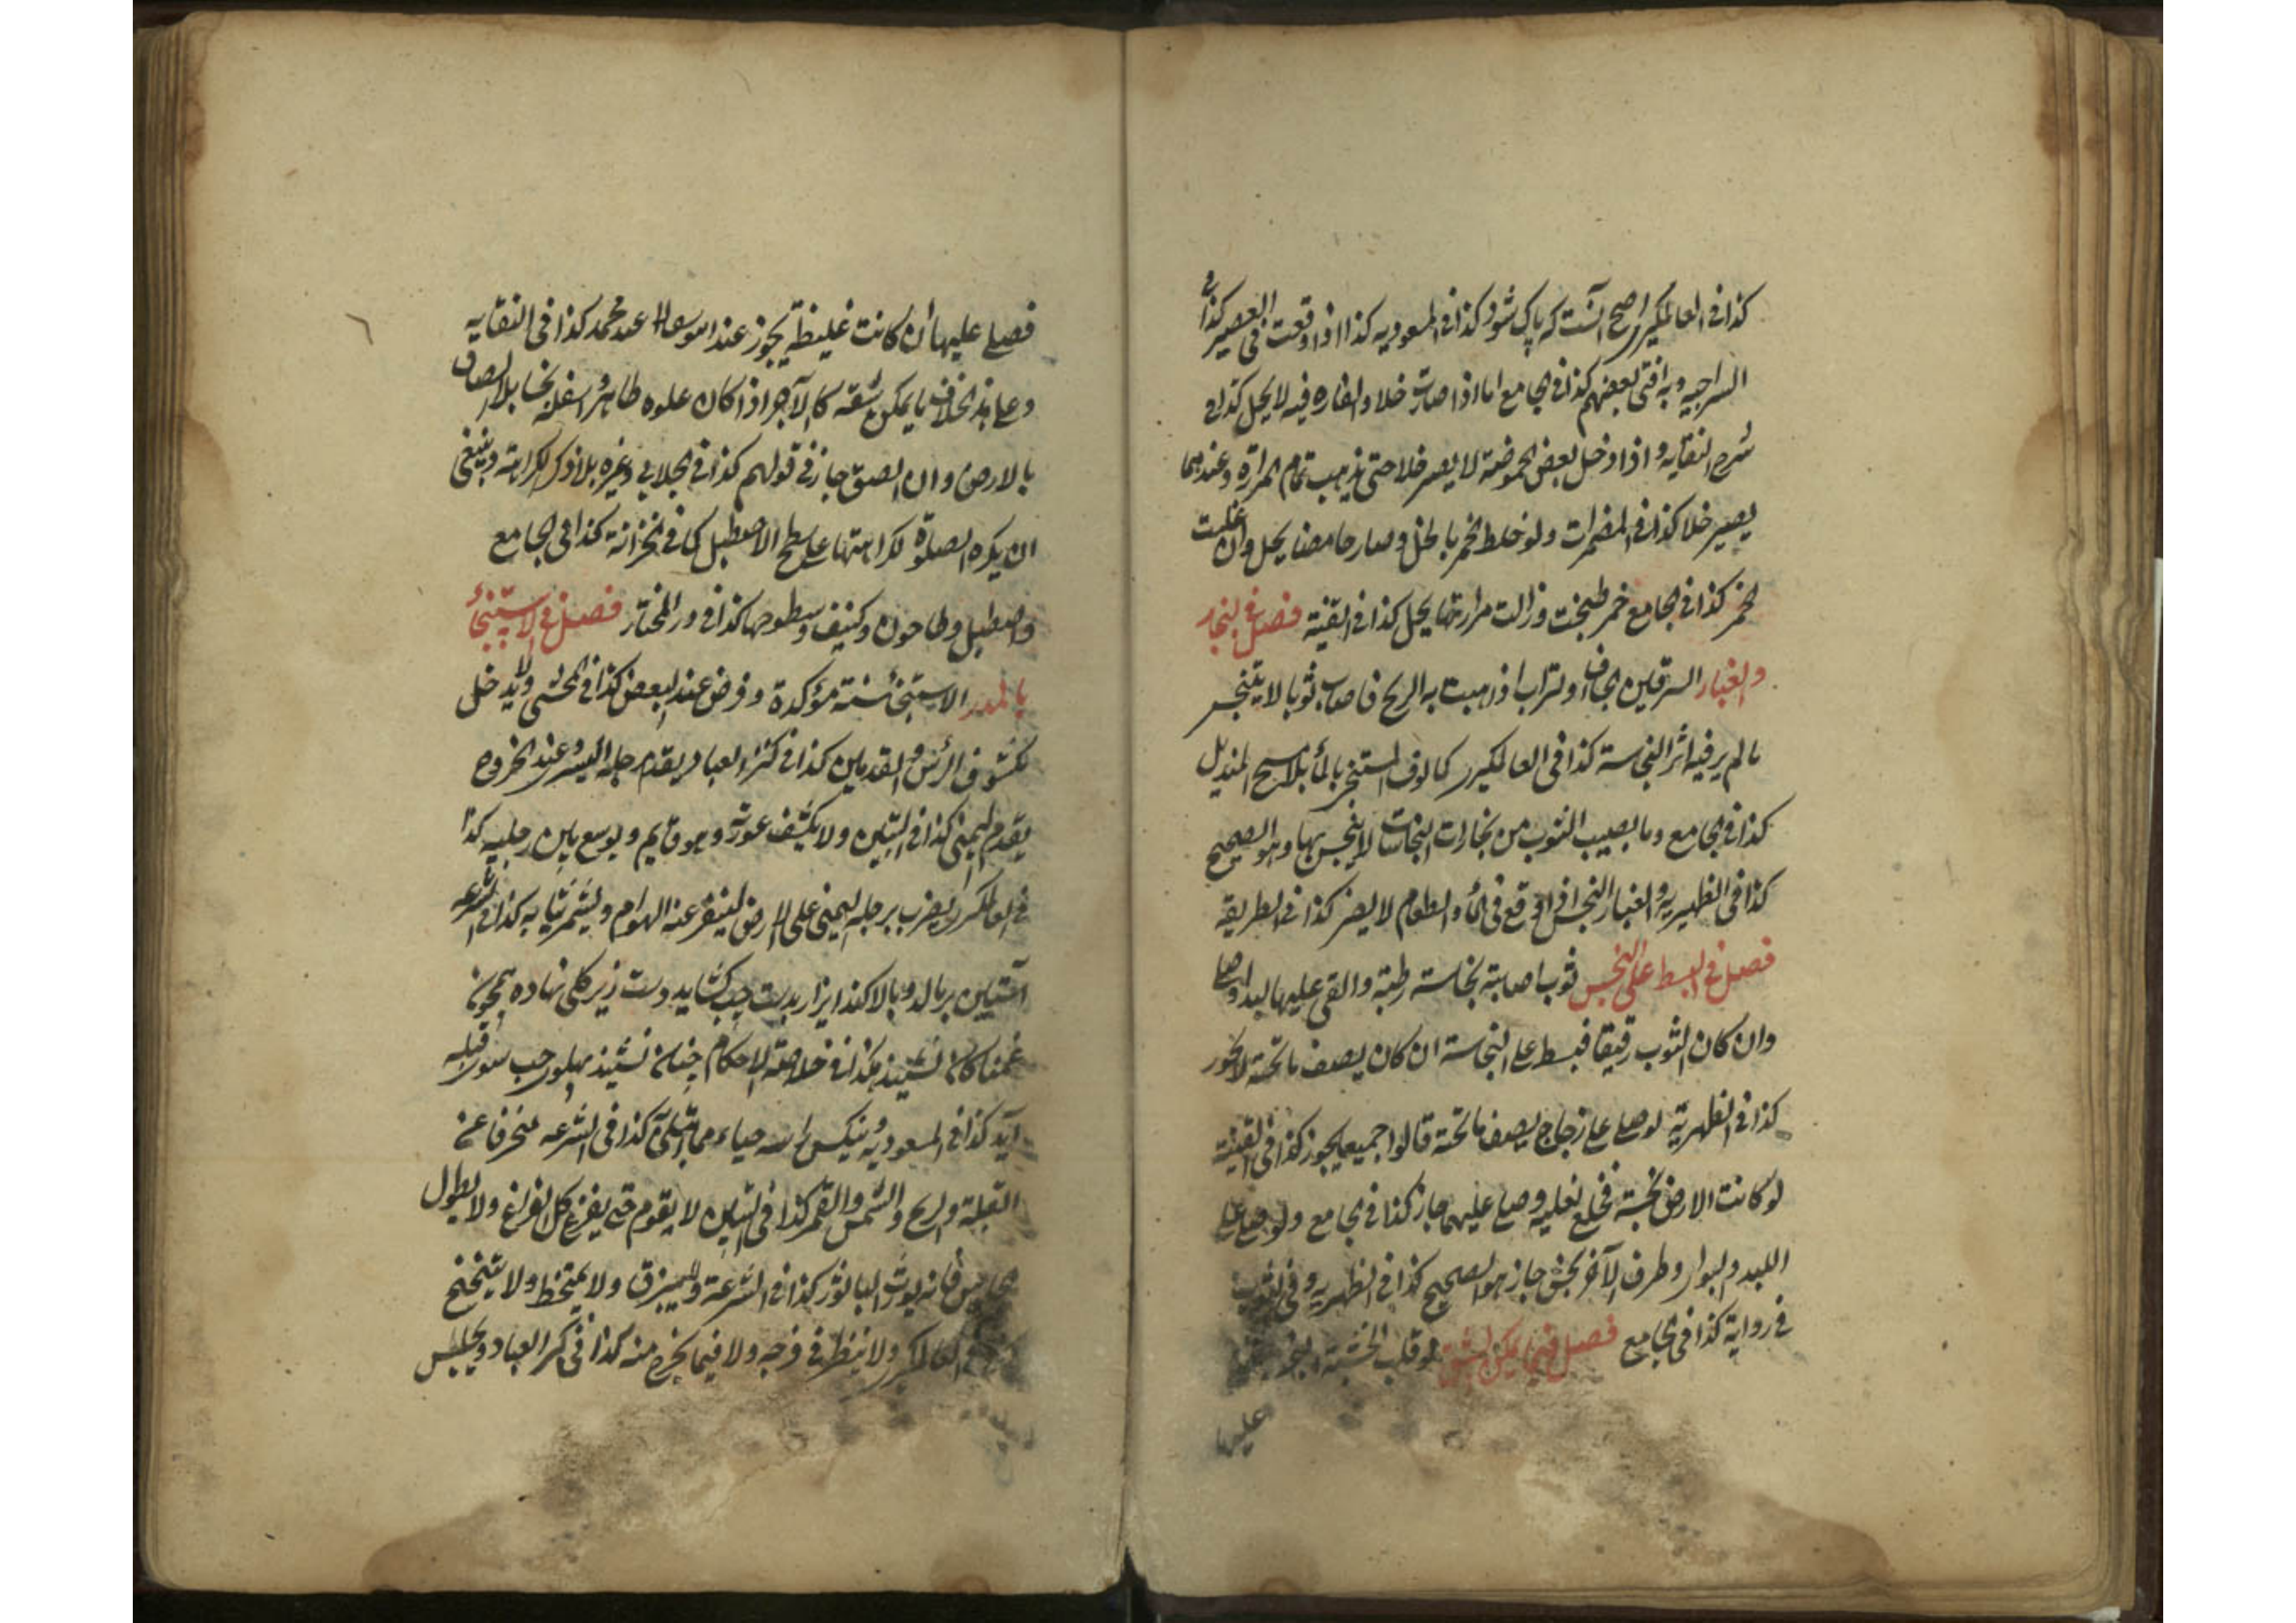 كذا فى العالمكيرى اصح آنست كه پاك شود كذا فى المسعوديه كذا اذا وقعت فى العصير كذا فى
السراجيه وبه افتى بعضهم كذا فى الجامع اما اذا صارت خلا والفاره فيه لا يحل كذا فى
شرح النقايه واذا دخل بعض الحموضة لا يصير خلا حتى يذهب تمام المرارة وعندهما
يصير خلا كذا فى المضمرات ولو خلط الخمر بالخل وصار حامضا يحل وان غلبت
الخمر كذا فى الجامع خمر طبخت وزالت مرارتها يحل كذا فى القنية فصل فى البخار
والغبار السرقين الجاف او تراب اذ هبت به الريح فاصاب ثوبا لا يتنجس
ما لم ير فيه اثر النجاسة كذا فى العالمكيرى كما لو فى المستنجى بالماء بلا مسح المنديل
كذا فى الجامع وما يصيب الثوب من بخارات النجاسات لا ينجس بها وهو الصحيح
كذا فى الظهيريه والغبار النجس اذا وقع فى الماء والطعام لا يضر كذا فى الطريقه
فصل فى البسط على النجس ثوب اصابته نجاسة رطبة والقى عليها لبدا وصلى
وان كان الثوب رقيقا فبسط على النجاسة ان كان يصف ما تحته لا يجوز
كذا فى الظهرية لو صلى على زجاج يصف ما تحته قالوا جميعا يجوز كذا فى القنية
لو كانت الارض نجسة فخلع نعليه وصلى عليهما جاز كذا فى الجامع ولو صلى على
اللبد والبوار وطرف الآخر نجس جاز هو الصحيح كذا فى الظهيريه وفى الثوب
فى رواية كذا فى الجامع فصل فيما يمكن شقه لو قلب الخشبة
عليها
فصلى عليها ان كانت غليظة يجوز عند ابو يوسف لا عند محمد كذا فى النقايه
وعلى هذا الخلاف ما يمكن شقه كالآجر اذا كان علوه طاهرا واسفله نجسا بلا الصاق
بالارض وان الصق جاز فى قولهم كذا فى الجلابى وغيره بلا ذكر الكراهة وينبغى
ان يكره الصلوة لكراهتها على سطح الاصطبل كما فى الخزانة كذا فى الجامع
واصطبل وطاحون وكنيف وسطوحها كذا فى در المختار فصل فى الاستنجاء
بالمدر الاستنجاء سنة مؤكدة وفرض عند البعض كذا فى المحشى ولا يدخل
مكشوف الرأس والقدمين كذا فى كنز العباد يقدم رجله اليسرى وعند الخروج
يقدم اليمنى كذا فى التبيين ولا يكشف عورته وهو قايم ويوسع بين رجليه كذا
فى العالمكيرى يضرب برجله اليمنى على الارض لينفر عنه الهوام ويشمر ثيابه كذا فى الشرعه
آستين بر مالد وبالا كند ايزار بدست چپ كشايد دست زير كلى نهاده همچون
غمناكان نشيند هكذا فى خلاصة الاحكام چنان نشيند پهلوى چپ سوى قبله
آيد كذا فى المسعوديه وينكس راسه حياء مما ابتلى كذا فى الشرعه منحرفا عن
القبلة والريح والشمس والقمر كذا فى التبيين لا يقوم حتى يفرغ كل الفراغ ولا يطول
فانه يورث الباسور كذا فى الشرعة ولا يبزق ولا يمتخط ولا يتنحنح
العالمكيرى ولا ينظر فى فرجه ولا فيما يخرج منه كذا فى كنز العباد ويجلس